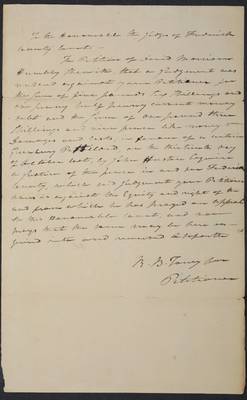 To the Honourable the Judges of Frederick
County Court—
The Petition of David Morrison
Humbly Sheweth that a Judgment was
rendered against your Petitioner for
the Sum of four pounds Six Shillings and
one penny half penny current money
debt and the Sum of One pound three
Shillings and nine pence like money
Damages and Costs in favour of a certain
Hilliard on the thirteenth day
of October last, by John Esquire
a Justice of the peace in and for Frederick
County, which said Judgment your Petitioner
is against the Equity and right of the
and from which he has prayed an appeal
to this Honourable Court, and now
prays that the same may be here
R. B. Taney for
Petitioner